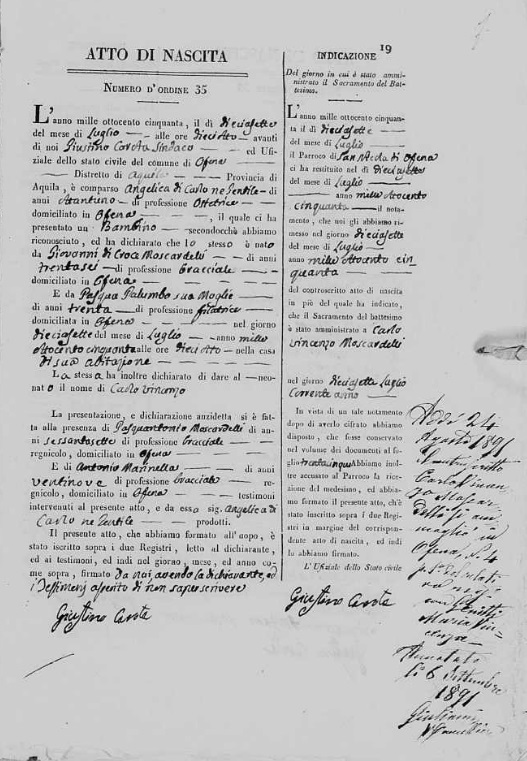 19
ATTO DI NASCITA
NUMERO D'ORDINE 35
L'anno mille ottocento cinquanta, il dì dieciasette
del mese di Luglio alle ore dieciotto avanti
di noi Giustino Carota Sindaco ed Ufi-
ziale dello stato civile del comune di Ofena
Distretto di Aquila Provincia di
Aquila, è comparso Angelica di Carlo ne Gentile di
anni di professione Ostetrice
domiciliato in Ofena, il quale ci ha
presentato un Bambino secondocchè abbiamo
riconosciuto, ed ha dichiarato che lo stesso è nato
da Giovanni di Croca Moscardelli di anni
trentasei di professione bracciale
domiciliato in Ofena
E da Pasqua Palumbo sua Moglie
di anni trenta di professione filatrice
domiciliata in Ofena nel giorno
dieciasette del mese di Luglio anno mille
ottocento cinquanta alle ore dieciotto nella casa
di sua abitazione
La stessa ha inoltre dichiarato di dare al neo-
nato il nome di Carlo vincenzo
La presentazione, e dichiarazione anzidetta si è fat-
ta alla presenza di Pasquantonio Moscardelli di an-
ni sessantasette di professione bracciale
regnicolo, domiciliato in Ofena
E di Antonio Marinella di anni
ventinove di professione bracciale re-
gnicolo, domiciliato in Ofena testimoni
intervenuti al presente atto, e da essa sig. Angelica di
Carlo ne Gentile prodotti.
Il presente atto, che abbiamo formato all'uopo, è
stato iscritto sopra i due Registri, letto al dichiarante,
ed ai testimoni, ed indi nel giorno, mese, ed anno co-
me sopra, firmato da noi, avendo la dichiarante, ed
i Testimonj asserito di non saper scrivere
Giustino Carota
INDICAZIONE
Del giorno in cui è stato ammi-
nistrato il Sacramento del Bat-
tesimo.
L'anno mille ottocento cinquan-
ta il dì dieciasette
del mese di Luglio
il Parroco di San Nicola di Ofena
ci ha restituito nel dì dieciasette
del mese di Luglio
anno mille ottocento
cinquanta il nota-
mento, che noi gli abbiamo ri-
messo nel giorno dieciasette
del mese di Luglio
anno mille ottocento cin
quanta
del controscritto atto di nascita
in piò del quale ha indicato,
che il Sacramento del battesimo
è stato amministrato a Carlo
vincenzo Moscardelli
nel giorno dieciasette Luglio
corrente anno
In vista di un tale notamento
dopo di averlo cifrato abbiamo
disposto, che fosse conservato
nel volume dei documenti al fo-
glio trentacinque Abbiamo inol-
tre accusato al Parroco la rice-
zione del medesimo, ed abbia-
mo formato il presente atto, ch'è
stato inscritto sopra i due Regi-
stri in margine del corrispon-
dente atto di nascita, ed indi
lo abbiamo firmato.
L'Ufiziale dello Stato civile
Giustino Carota
Addì 24
Agosto 1891
Carlo Vincen
zo Moscar
delli
Ofena
Maria Vin
cenza
Annotato
li 6 Settembre
1891